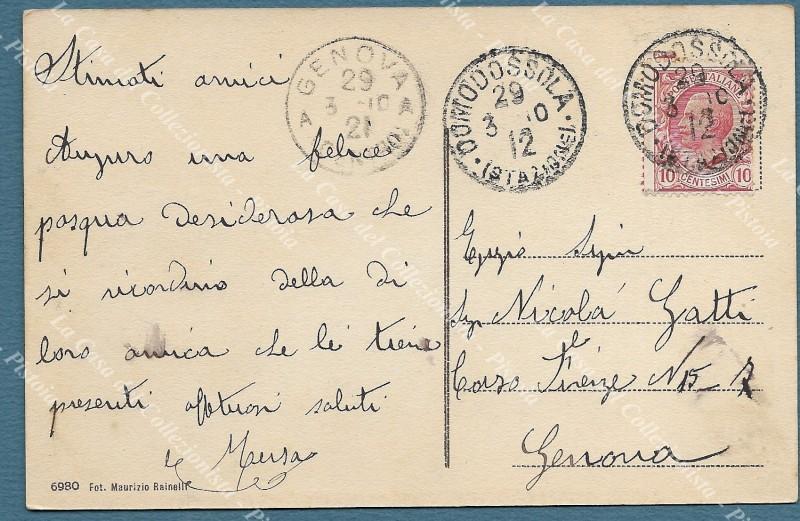 Stimati amici
Auguro una felice
pasqua desiderosa che
si ricordino della di
loro amica che le tiene
presenti saluti
GENOVA
29
3-10
21
DOMODOSSOLA
29
3 10
12
(STAZIONE)
DOMODOSSOLA
29
3 10
12
(STAZIONE)
POSTE ITALIANE
10 CENTESIMI 10
Egregio
Sig Nicola Gatti
Corso Firenze N 15
Genova
6980 Fot. Maurizio Rainelli
La Casa del Collezionista - Pistoia